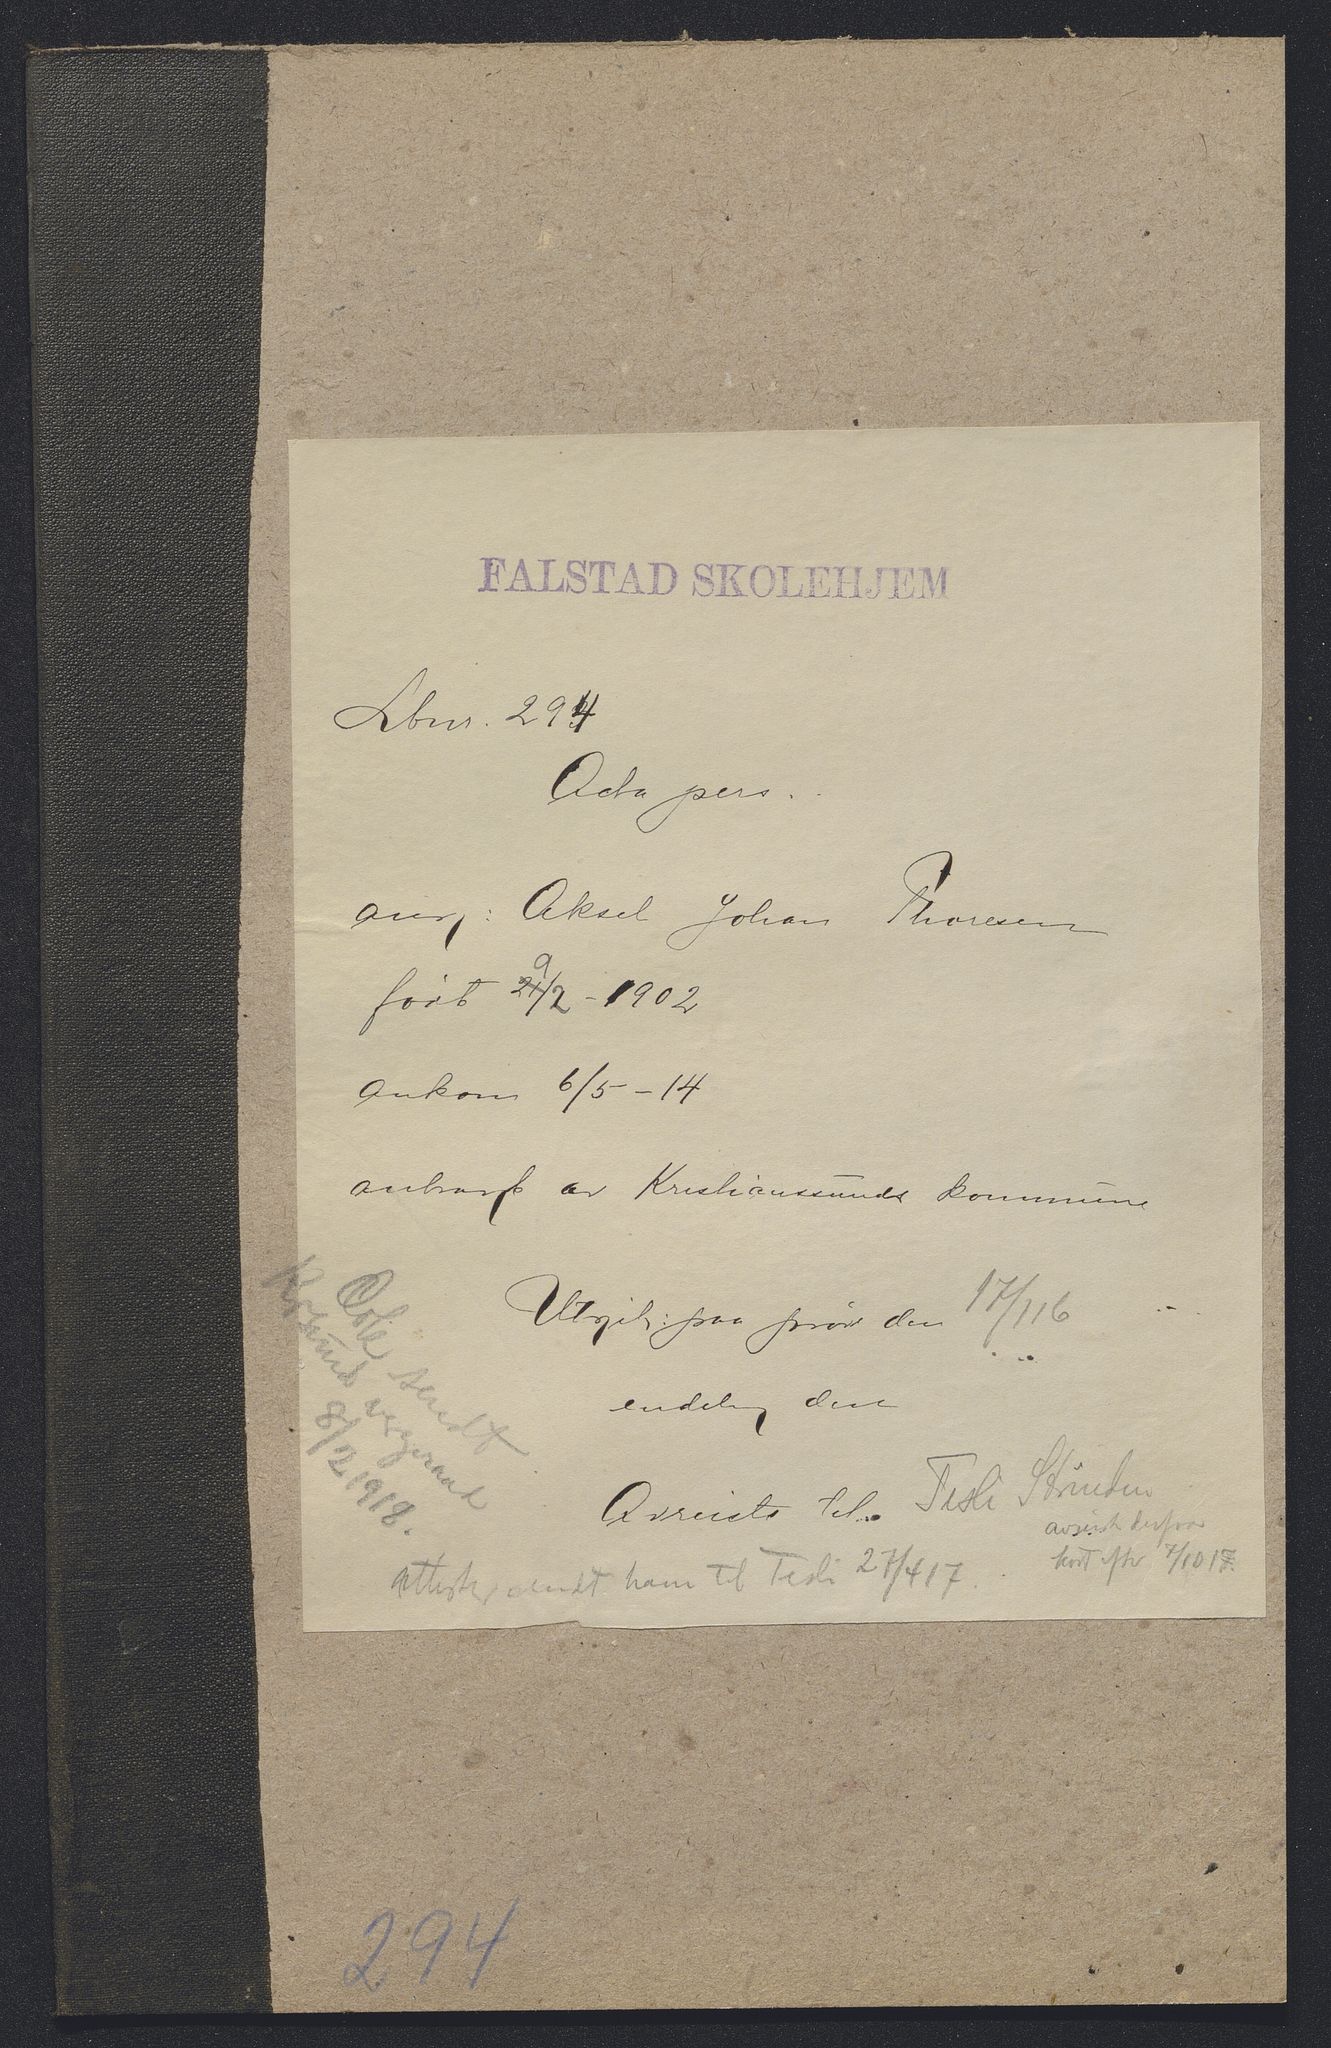 FALSTAD SKOLEHJEM
Lbnr. 294
Acta pers.
ang: Aksel Johan Thoresen
født 9/2 - 1902
ankom 6/5 - 14
anbragt av Kristianssunds kommune
Utgit: paa prøve den 17/1 16
endelig den
Avreiste til Tesli Strinden
avreist derfra
kort efter 7/10 17.
sendt ham til Tesli 27/4 17.
sendt
Kr.sund vergeraad
8/2 1918.
294